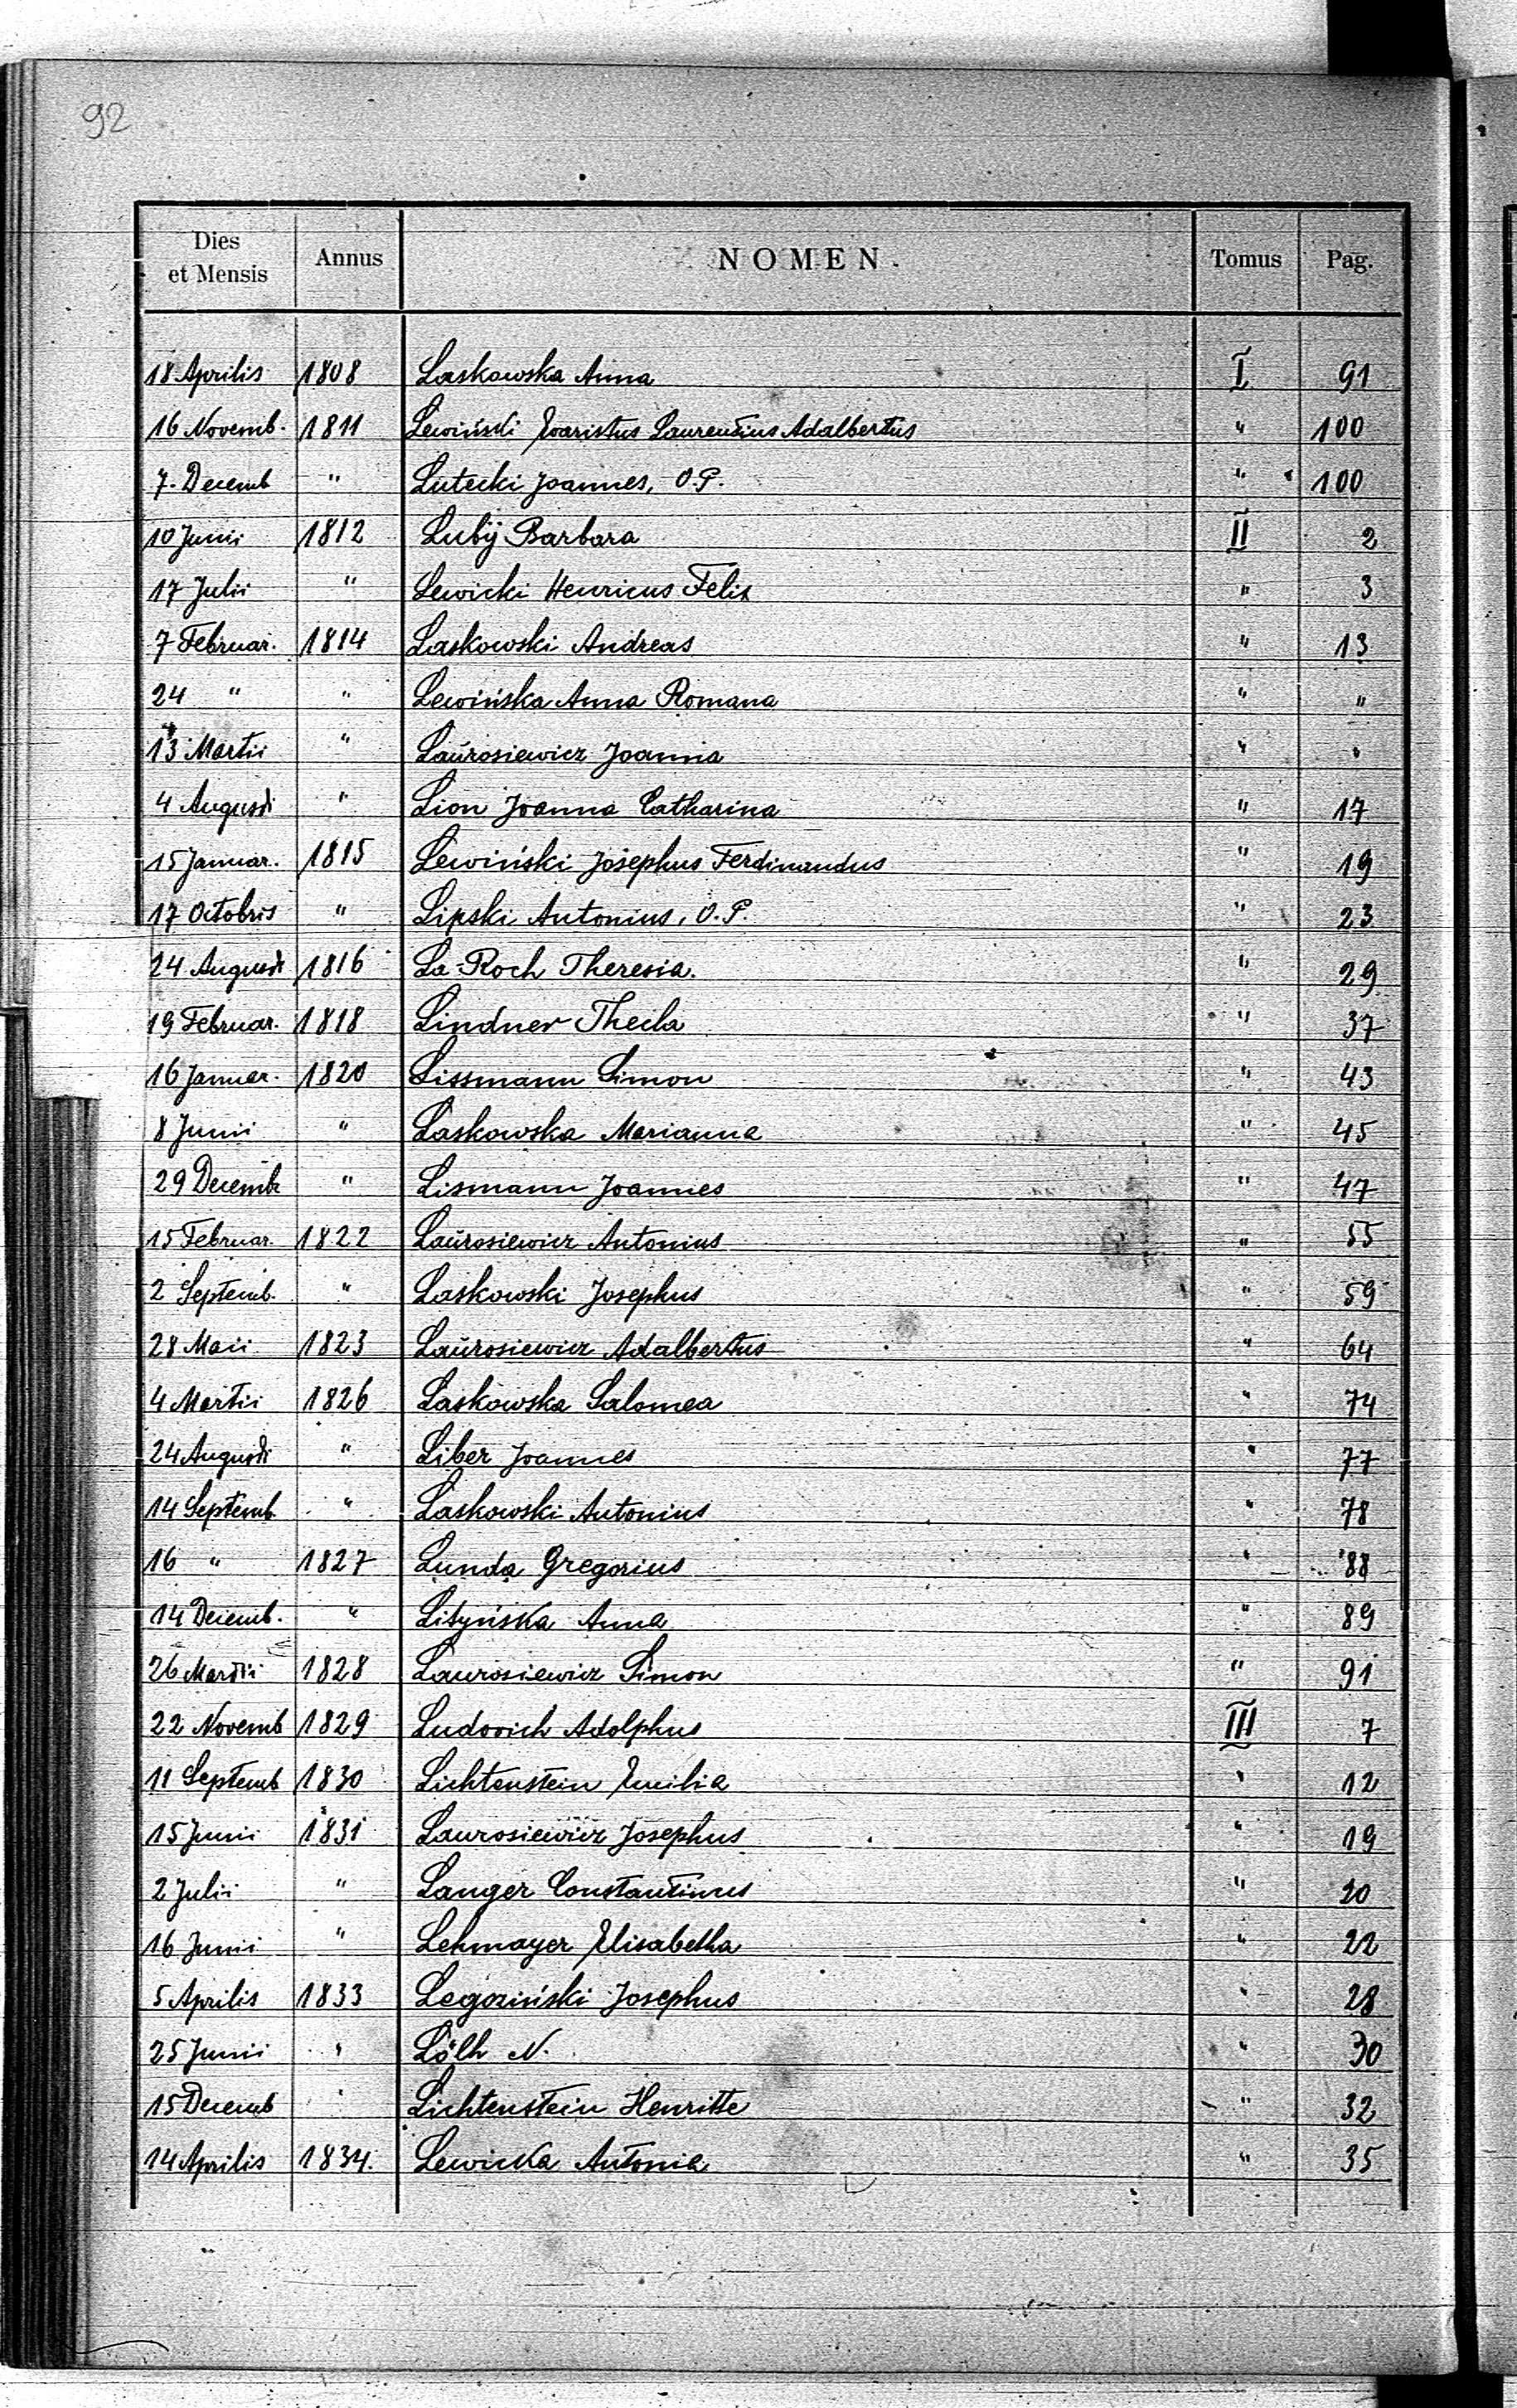 92
Dies et Mensis Annus NOMEN. Tomus Pag.
18 Aprilis 1808 Laskowska Anna I 91
16 Novemb. 1811 Lewiński Evaristus Laurentius Adalbertus " 100
7. Decemb " Lutecki Joannes, O.P. " 100
10 Junii 1812 Lubÿ Barbara II 2
17 Julii " Lewicki Henricus Felix " 3
7 Februar. 1814 Laskowski Andreas " 13
24 " " Lewińska Anna Romana " "
13 Martii " Laŭrosiewicz Joannia " "
4 Augusti " Lion Joanna Catharina " 17
15 Januar. 1815 Lewiński Josephus Ferdinandus " 19
17 Octobris " Lipski Antonius, O.P. " 23
24 Augusti 1816 La-Roch Theresia. " 29
19 Februar. 1818 Lindner Thecla " 37
16 Januar. 1820 Lissmann Simon " 43
8 Junii " Laskowska Marianna " 45
29 Decemb " Lismann Joannes " 47
15 Februar. 1822 Laŭrosiewicz Antonius " 55
2 Septemb. " Laskowski Josephus " 59
28 Maii 1823 Laŭrosiewicz Adalbertus " 64
4 Martii 1826 Laskowska Salomea " 74
24 Augusti " Liber Joannes " 77
14 Septemb. " Laskowski Antonius " 78
16 " 1827 Lunda Gregorius " 88
14 Decemb. " Lityńska Anna " 89
26 Martii 1828 Laurosiewicz Simon " 91
22 Novemb 1829 Ludovich Adolphus III 7
11 Septemb 1830 Lichtenstein Emilia " 12
15 Junii 1831 Laurosiewicz Josephus " 19
2 Julii " Langer Constantinus " 20
16 Junii " Lehmayer Elisabetha " 22
5 Aprilis 1833 Legoziński Josephus " 28
25 Junii " Lölh N. " 30
15 Decemb " Lichtenstein Henritte " 32
14 Aprilis 1834. Lewicka Antonia " 35